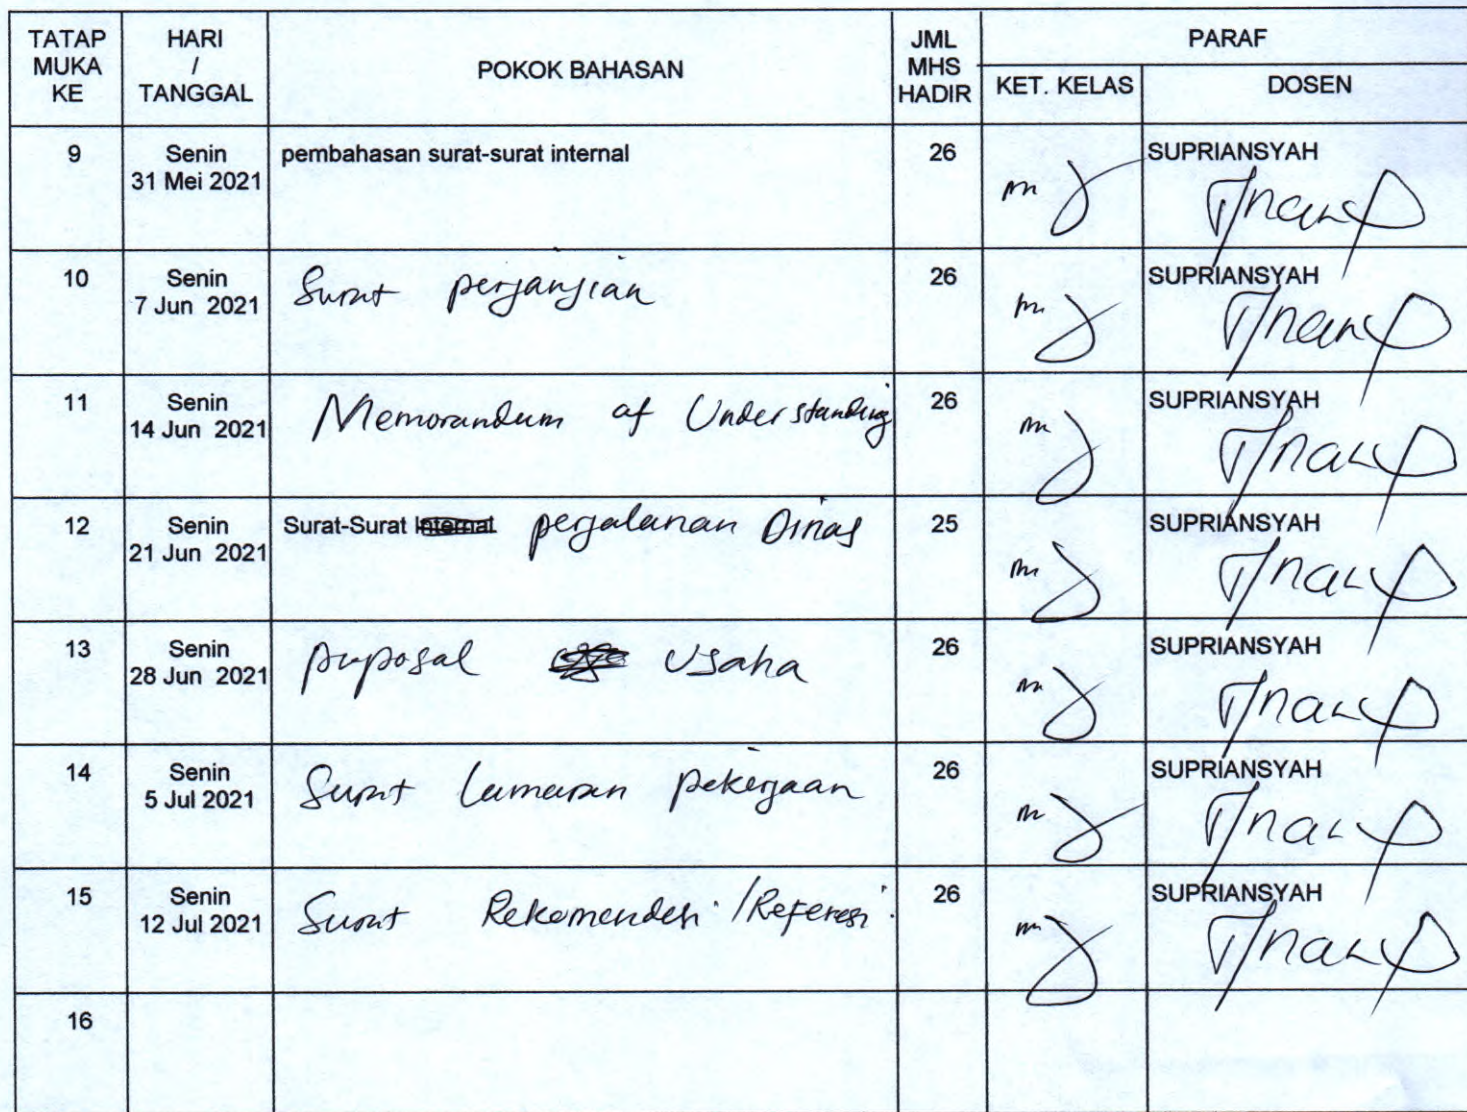 TATAP MUKA KE
HARI / TANGGAL
POKOK BAHASAN
JML MHS HADIR
PARAF
KET. KELAS
DOSEN
9
Senin
31 Mei 2021
pembahasan surat-surat internal
26
SUPRIANSYAH
10
Senin
7 Jun 2021
Surat perjanjian
26
SUPRIANSYAH
11
Senin
14 Jun 2021
Memorandum of Understanding
26
SUPRIANSYAH
12
Senin
21 Jun 2021
Surat-Surat Internal perjalanan Dinas
25
SUPRIANSYAH
13
Senin
28 Jun 2021
proposal Usaha
26
SUPRIANSYAH
14
Senin
5 Jul 2021
Surat Lamaran pekerjaan
26
SUPRIANSYAH
15
Senin
12 Jul 2021
Surat Rekomendasi /Referesi
26
SUPRIANSYAH
16